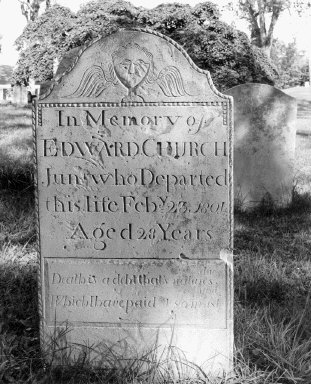 In Memory of
EDWARD CHURCH
Junr who Departed
this life Feby 23, 1801,
Aged 28 Years
Death is a debt that's
Which I have paid